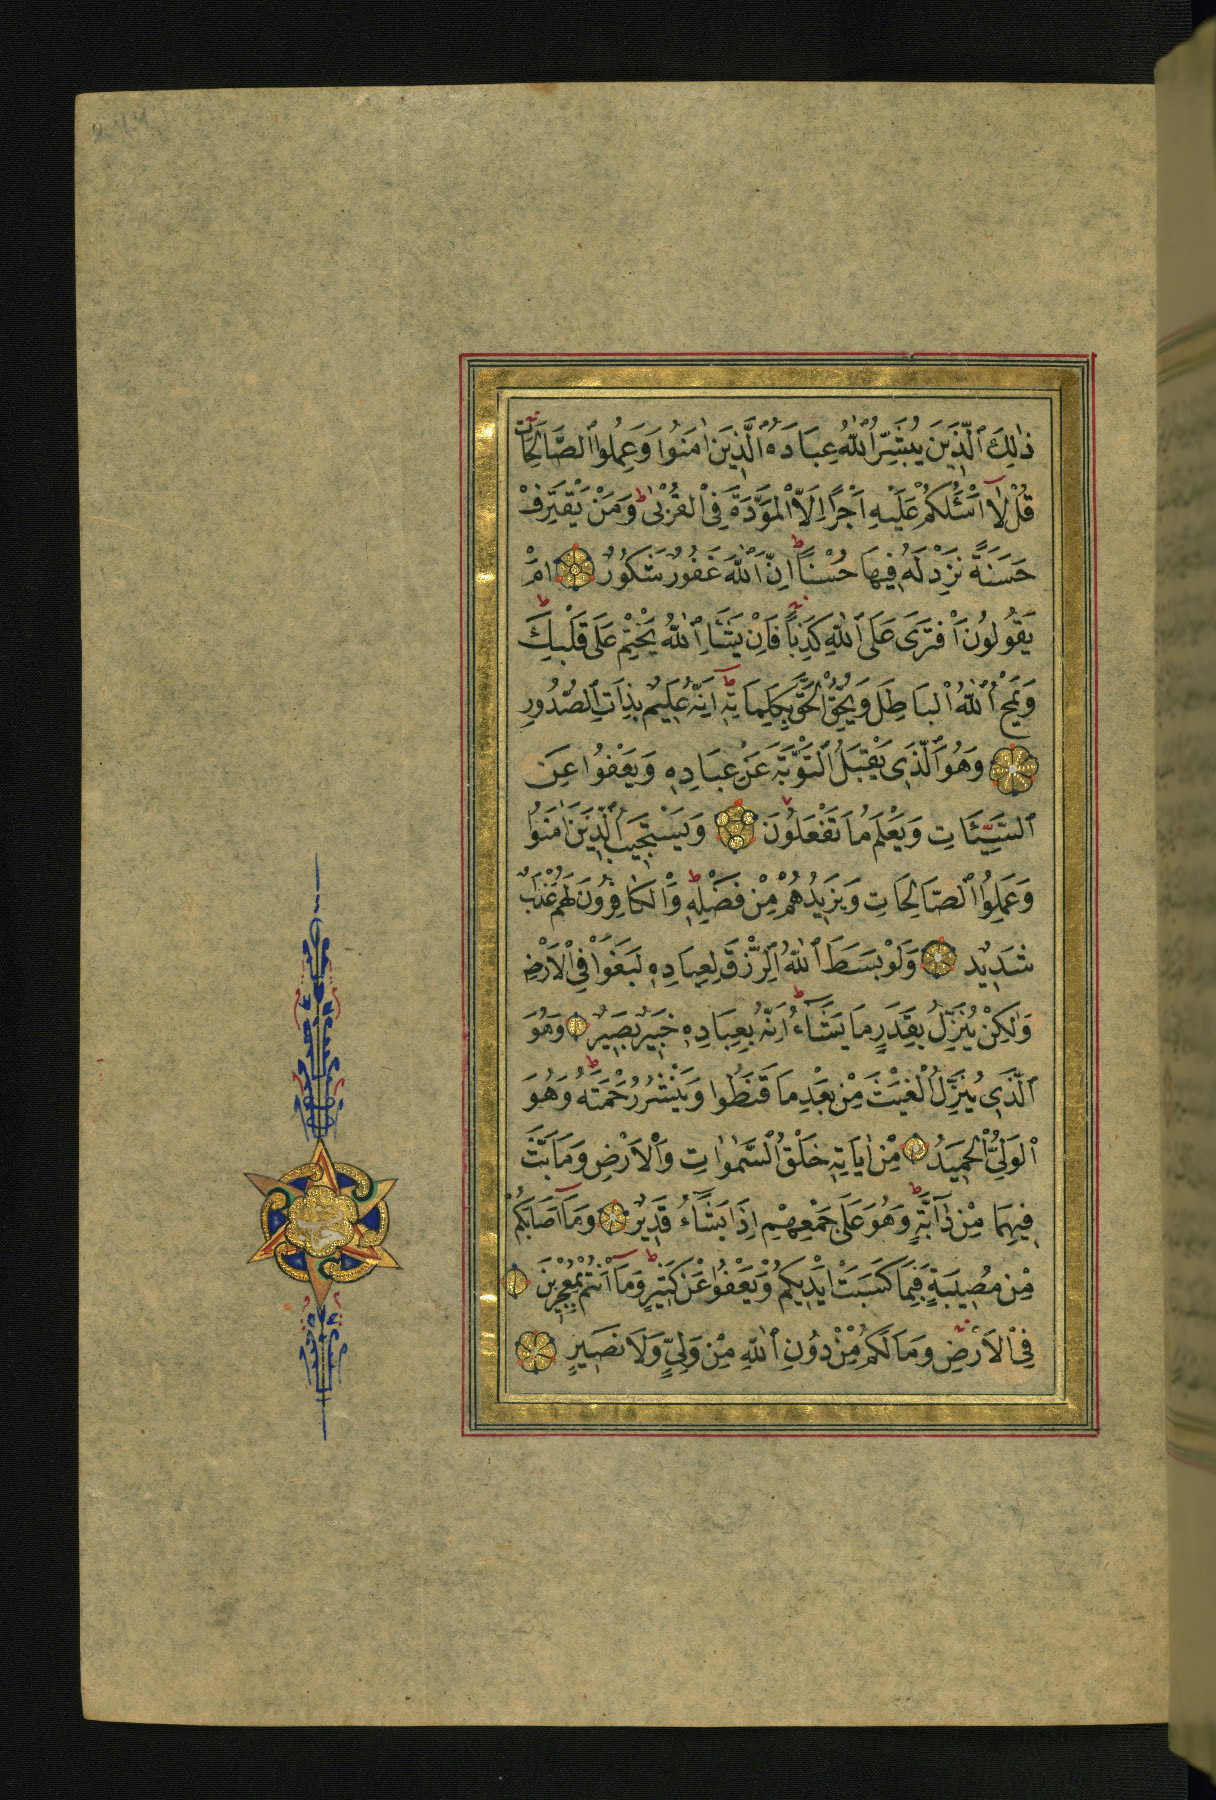 ذٰلِكَ ٱلَّذِينَ يُبَشِّرُ ٱللّٰهُ عِبَادَهُ ٱلَّذِينَ اٰمَنُوا وَعَمِلُوا ٱلصَّالِحَاتِ
قُلْ لَآ اَسْئَلُكُمْ عَلَيْهِ اَجْرًا اِلَّا ٱلْمَوَدَّةَ فِى ٱلْقُرْبٰى وَمَنْ يَقْتَرِفْ
حَسَنَةً نَزِدْ لَهُ فِيهَا حُسْنًا اِنَّ ٱللّٰهَ غَفُورٌ شَكُورٌ اَمْ
يَقُولُونَ ٱفْتَرَى عَلَى ٱللّٰهِ كَذِبًا فَاِنْ يَشَاِ ٱللّٰهُ يَخْتِمْ عَلَى قَلْبِكَ
وَيَمْحُ ٱللّٰهُ ٱلْبَاطِلَ وَيُحِقُّ ٱلْحَقَّ بِكَلِمَاتِهِٓ اِنَّهُ عَلِيمٌ بِذَاتِ ٱلصُّدُورِ
وَهُوَ ٱلَّذِى يَقْبَلُ ٱلتَّوْبَةَ عَنْ عِبَادِهِ وَيَعْفُوا عَنِ
ٱلسَّيِّئَاتِ وَيَعْلَمُ مَا تَفْعَلُونَ وَيَسْتَجِيبُ ٱلَّذِينَ اٰمَنُوا
وَعَمِلُوا ٱلصَّالِحَاتِ وَيَزِيدُهُمْ مِنْ فَضْلِهِ وَٱلْكَافِرُونَ لَهُمْ عَذَابٌ
شَدِيدٌ وَلَوْ بَسَطَ ٱللّٰهُ ٱلرِّزْقَ لِعِبَادِهِ لَبَغَوْا فِى ٱلْاَرْضِ
وَلٰكِنْ يُنَزِّلُ بِقَدَرٍ مَا يَشَآءُ اِنَّهُ بِعِبَادِهِ خَبِيرٌ بَصِيرٌ وَهُوَ
ٱلَّذِى يُنَزِّلُ ٱلْغَيْثَ مِنْ بَعْدِ مَا قَنَطُوا وَيَنْشُرُ رَحْمَتَهُ وَهُوَ
ٱلْوَلِىُّ ٱلْحَمِيدُ مِنْ اٰيَاتِهِ خَلْقُ ٱلسَّمٰوَاتِ وَٱلْاَرْضِ وَمَا بَثَّ
فِيهِمَا مِنْ دَآبَّةٍ وَهُوَ عَلَى جَمْعِهِمْ اِذَا يَشَآءُ قَدِيرٌ وَمَآ اَصَابَكُمْ
مِنْ مُصِيبَةٍ فَبِمَا كَسَبَتْ اَيْدِيكُمْ وَيَعْفُوا عَنْ كَثِيرٍ وَمَآ اَنْتُمْ بِمُعْجِزِينَ
فِى ٱلْاَرْضِ وَمَا لَكُمْ مِنْ دُونِ ٱللّٰهِ مِنْ وَلِىٍّ وَلَا نَصِيرٍ